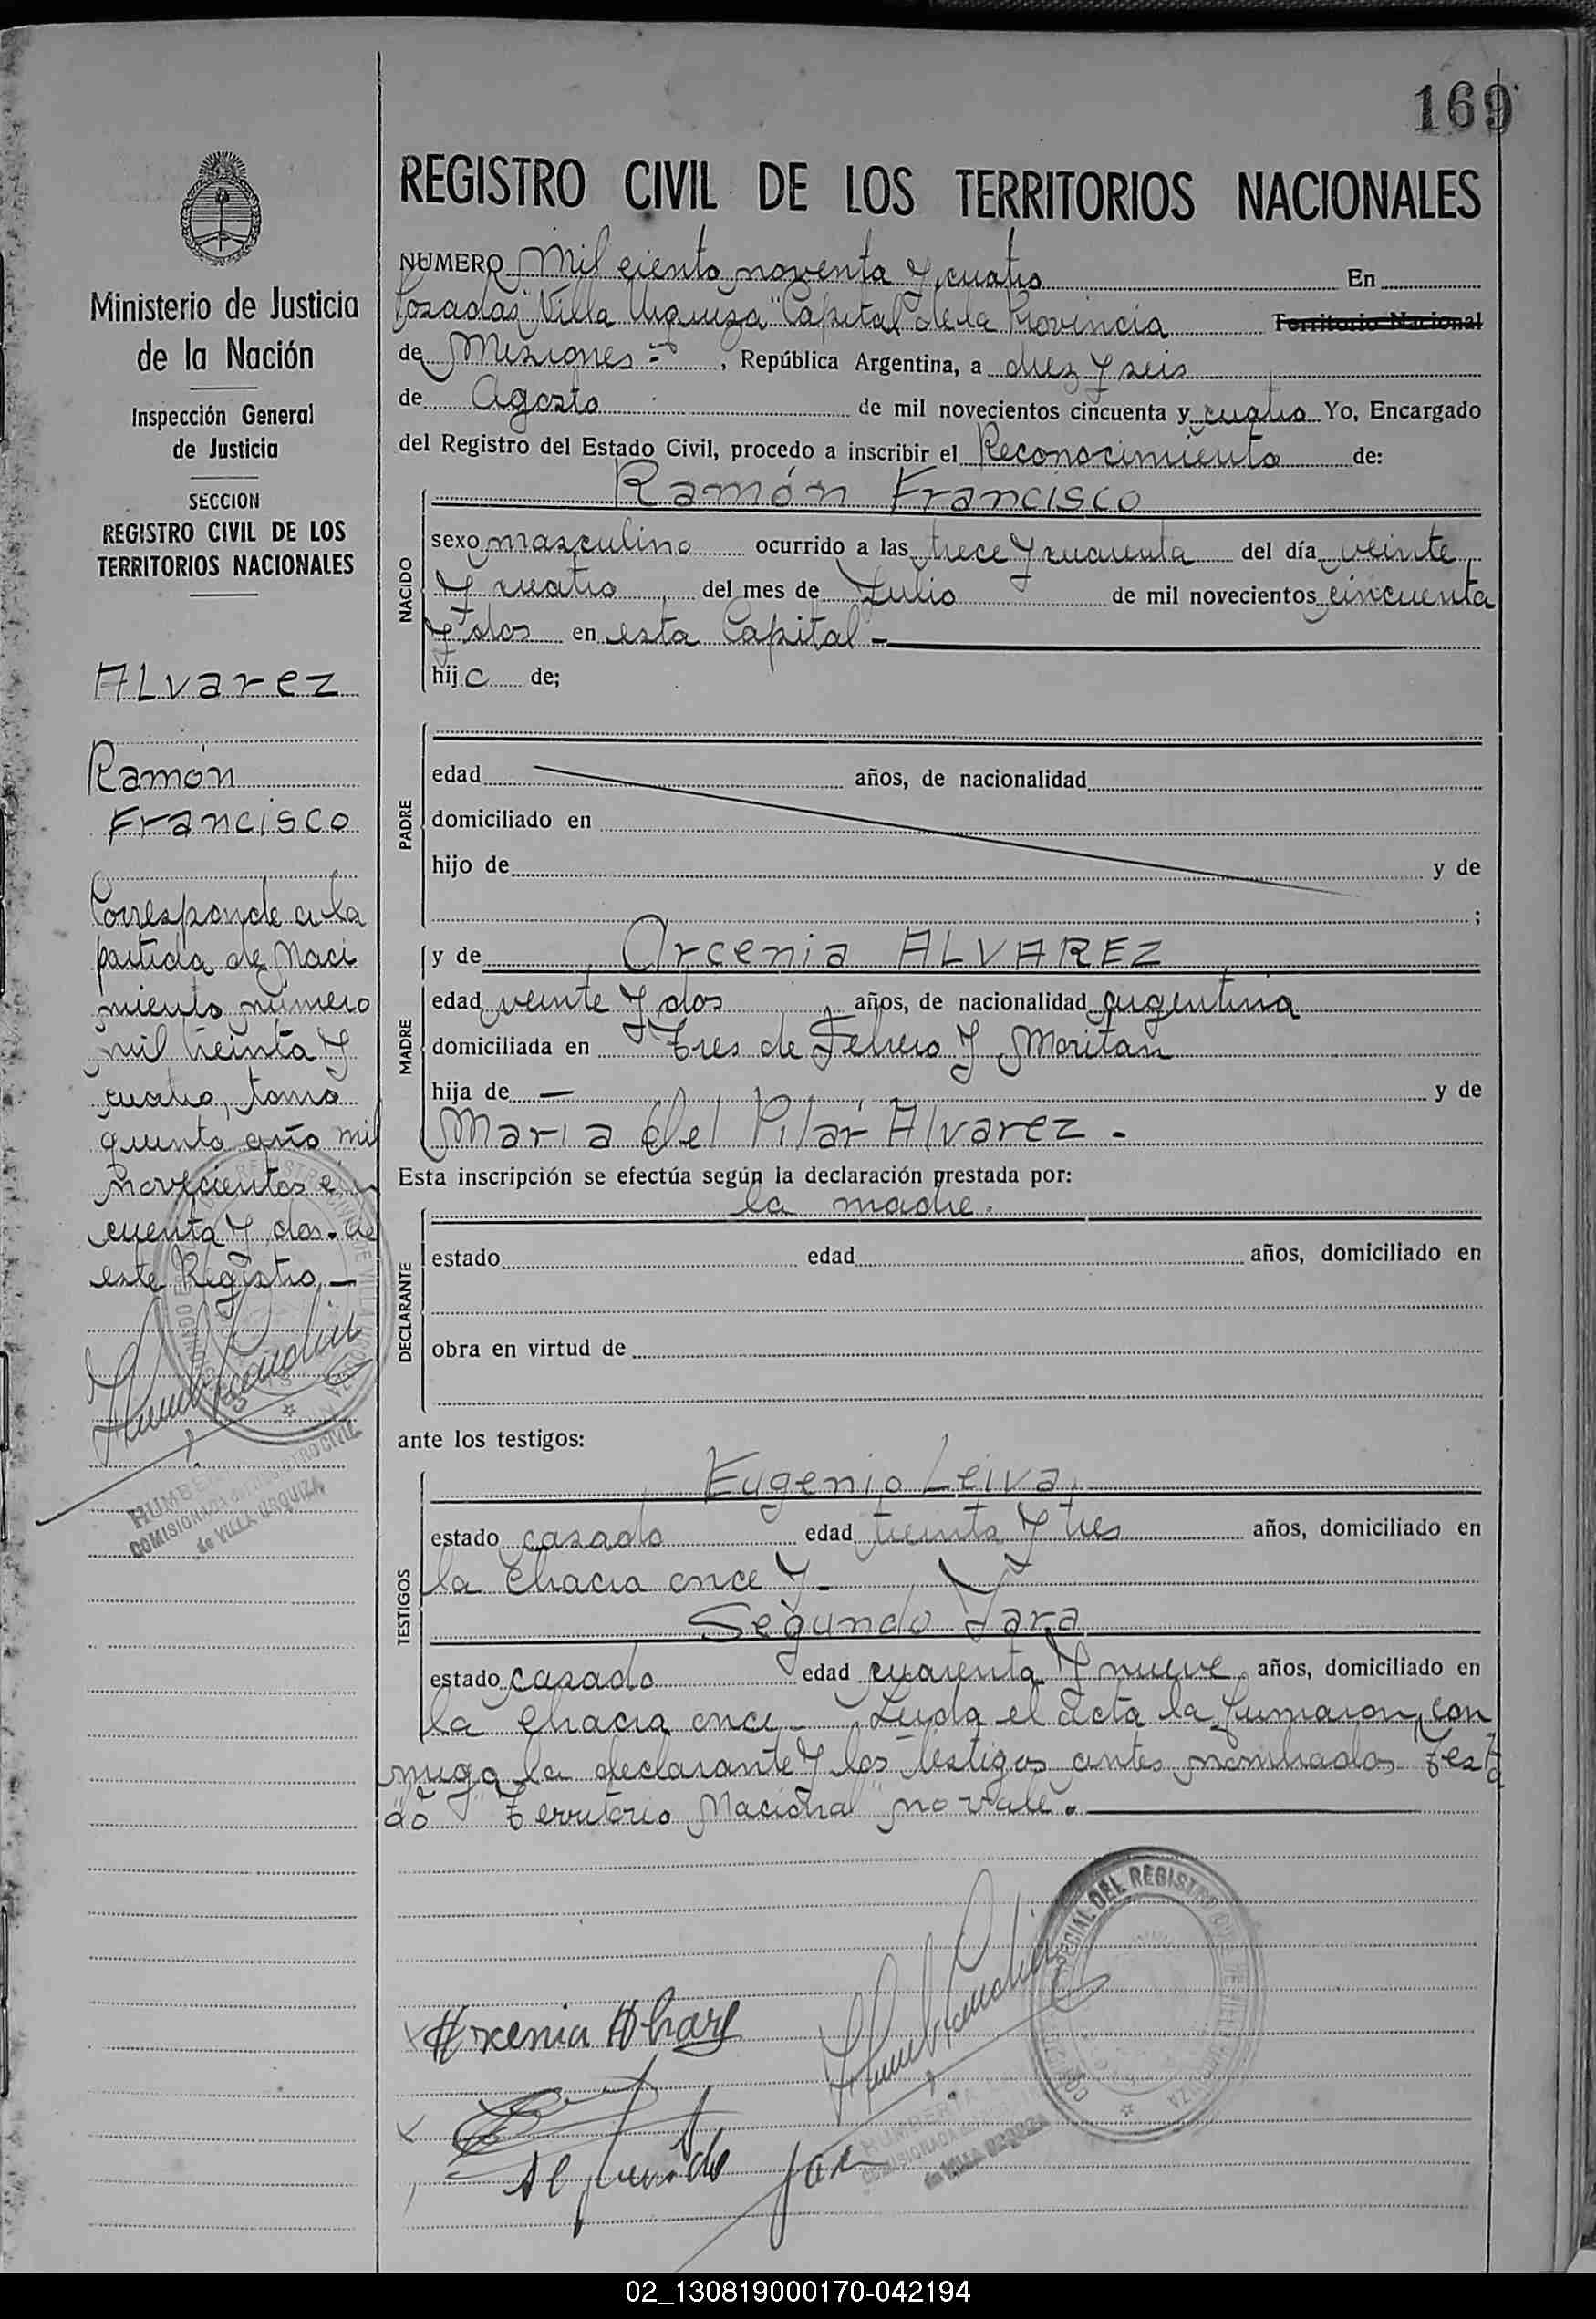 169
REGISTRO CIVIL DE LOS TERRITORIOS NACIONALES
Ministerio de Justicia
de la Nación
Inspección General
de Justicia
SECCION
REGISTRO CIVIL DE LOS
TERRITORIOS NACIONALES
ALvarez
Ramón
Francisco
Corresponde a la
partida de Naci
miento número
mil treinta y
cuatro, tomo
quinto año mil
novecientos
cuenta y dos de
este Registro.—
COMISIONADA del REGISTRO CIVIL
de VILLA URQUIZA
NUMERO Mil ciento noventa y cuatro En
Posadas "Villa Urquiza" Capital de la Provincia Territorio Nacional
de Misiones =, República Argentina, a diez y seis
de Agosto de mil novecientos cincuenta y cuatro Yo, Encargado
del Registro del Estado Civil, procedo a inscribir el Reconocimiento de:
Ramón Francisco
NACIDO
sexo masculino ocurrido a las trece y cuarenta del día veinte
y cuatro del mes de Julio de mil novecientos cincuenta
y dos en esta Capital —
hijo de;
PADRE
edad años, de nacionalidad
domiciliado en
hijo de y de
;
MADRE
y de Arcenia ALVAREZ
edad veinte y dos años, de nacionalidad argentina
domiciliada en Tres de Febrero y Moritan
hija de — y de
Maria del Pilar Alvarez.
Esta inscripción se efectúa según la declaración prestada por:
la madre.
DECLARANTE
estado edad años, domiciliado en
obra en virtud de
ante los testigos:
TESTIGOS
Eugenio Leiva,
estado casado edad treinta y tres años, domiciliado en
la Chacra once y -
Segundo Jara
estado casado edad cuarenta y nueve años, domiciliado en
la Chacra once - Leída el acta la firmaron con
migo la declarante y los testigos antes nombrados Testa
do "Territorio Nacional" no vale.
Arxenia Alvarez
Segundo Jara
COMISIONADA
de VILLA URQUIZA
02_130819000170-042194